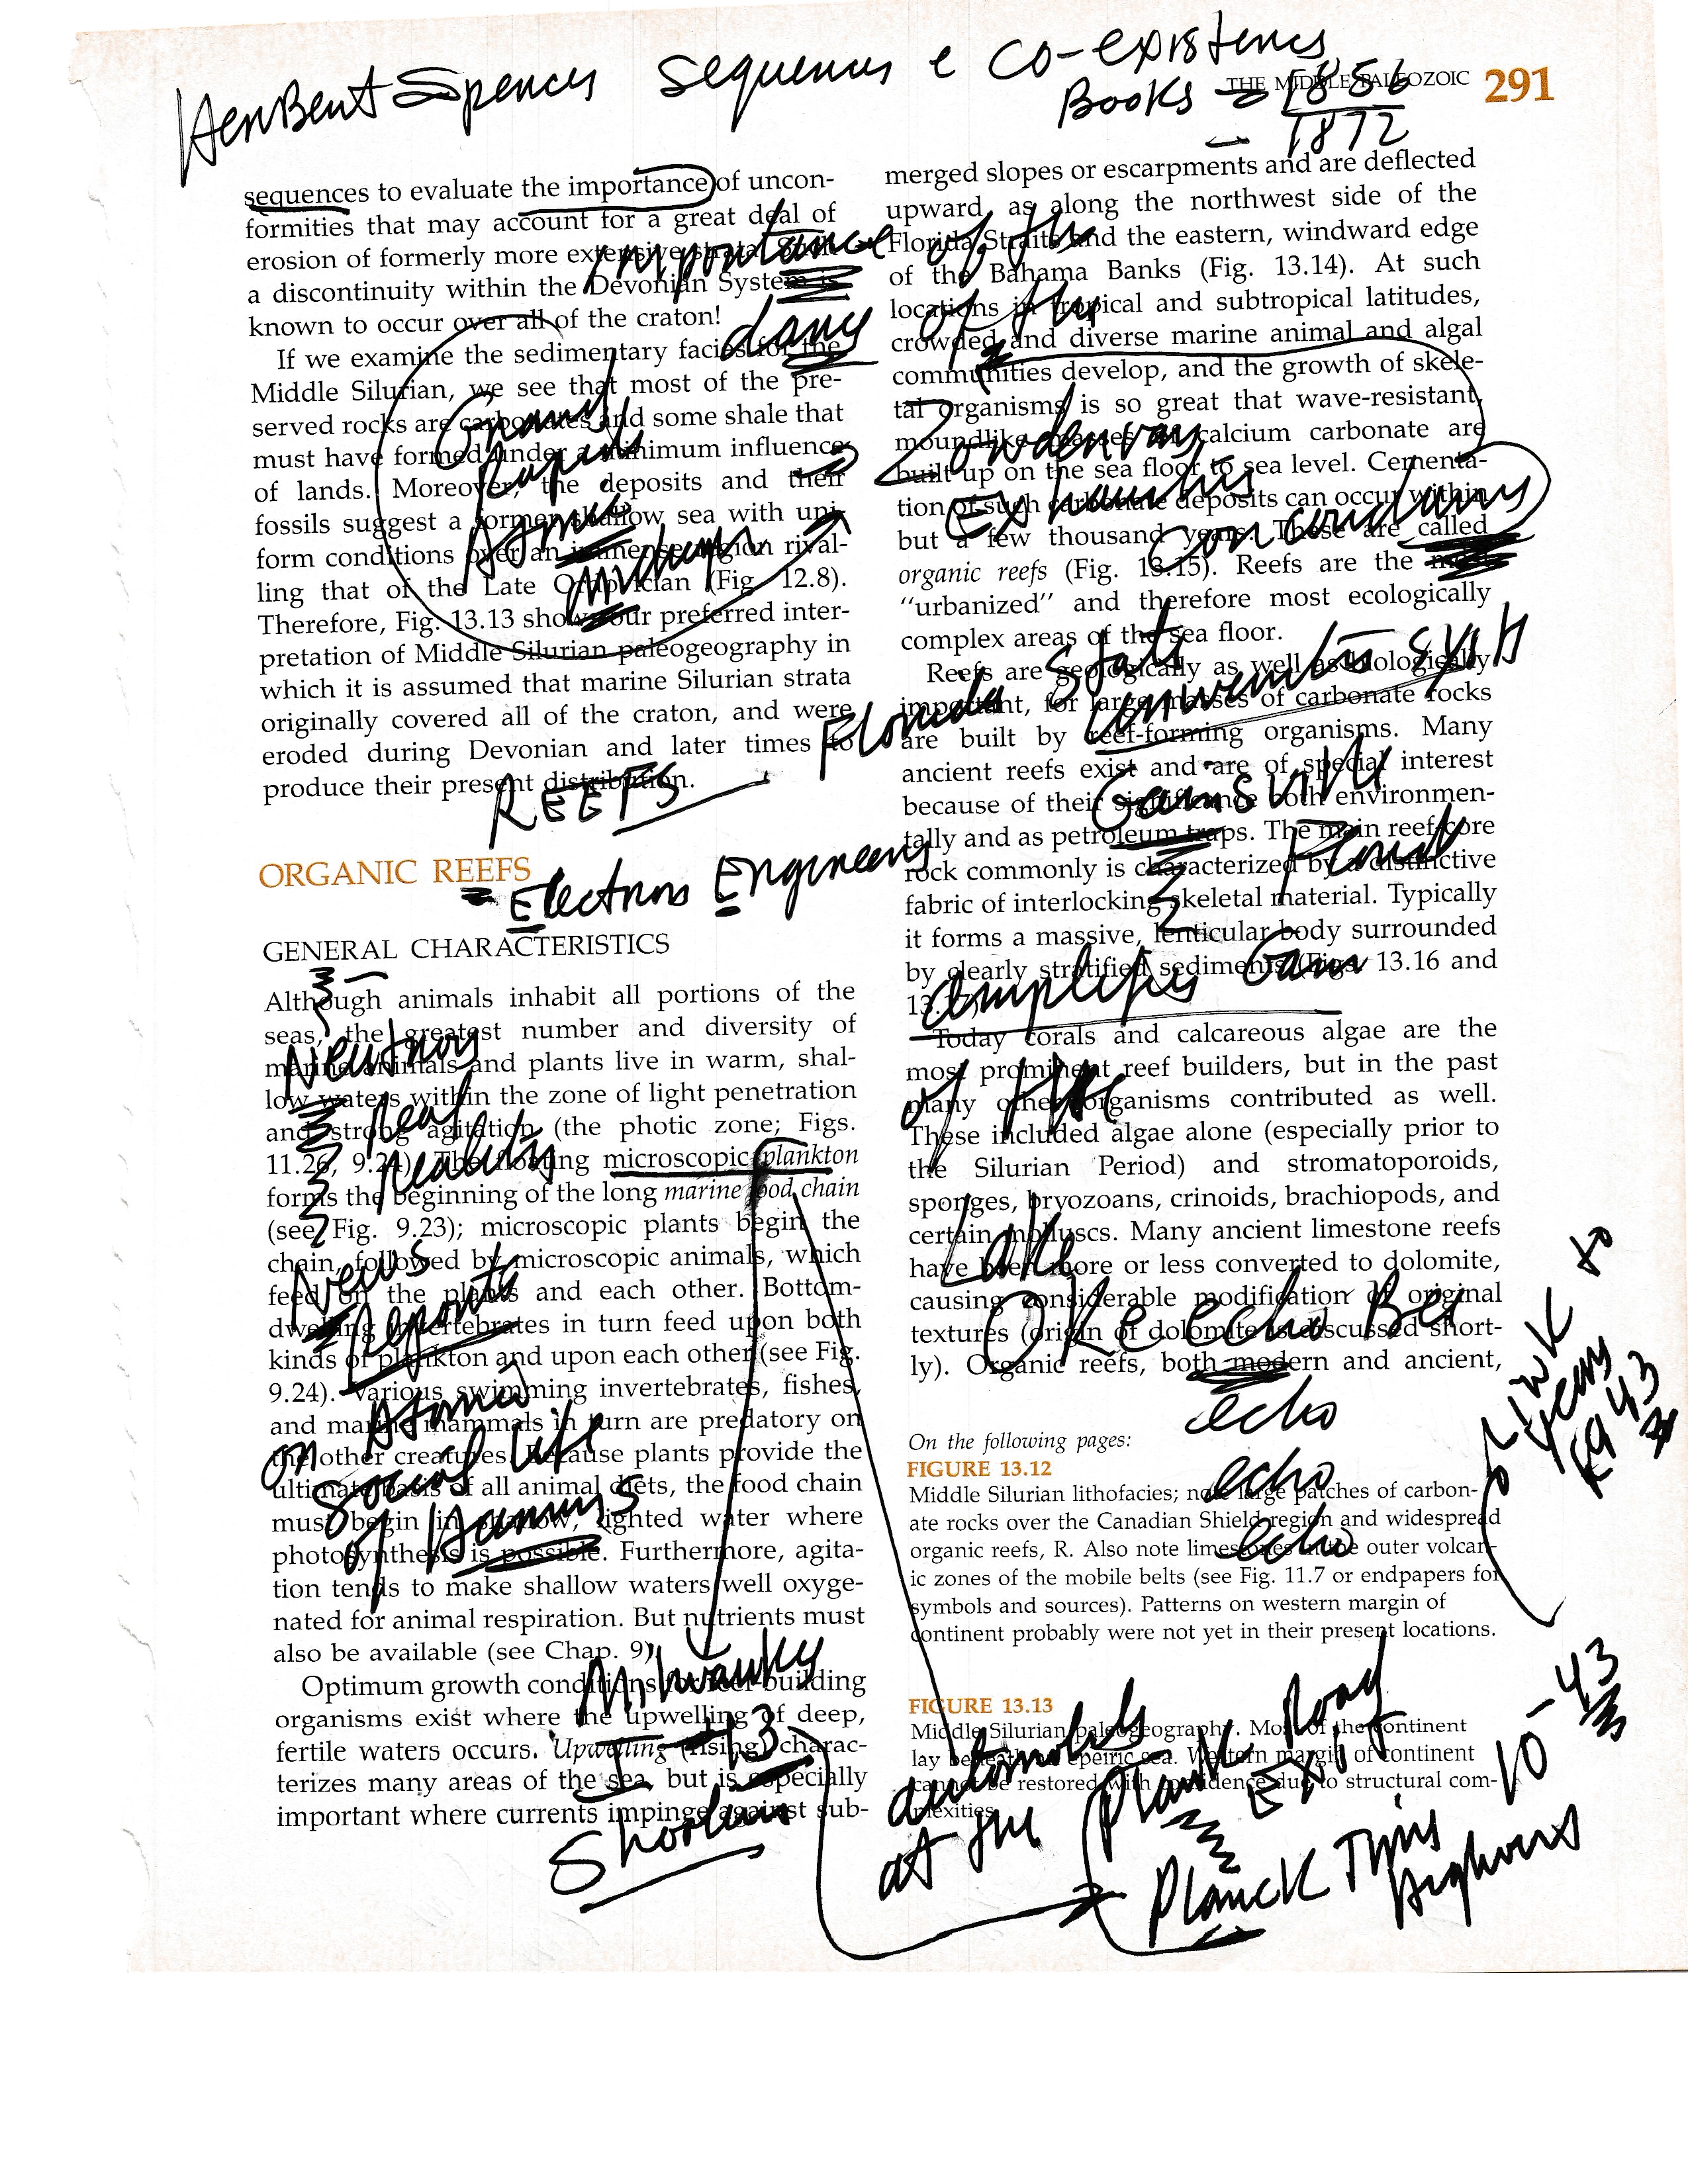 HerBert Spences sequences e co-existences
Books → 1856
1872
THE MIDDLE PALEOZOIC 291
sequences to evaluate the importance of uncon-
formities that may account for a great deal of
erosion of formerly more extensive strata. Such
a discontinuity within the Devonian System is
known to occur over all of the craton!
If we examine the sedimentary facies for the
Middle Silurian, we see that most of the pre-
served rocks are carbonates and some shale that
must have formed under a minimum influence
of lands. Moreover, the deposits and their
fossils suggest a former shallow sea with uni-
form conditions over an immense region rival-
ling that of the Late Ordovician (Fig. 12.8).
Therefore, Fig. 13.13 shows our preferred inter-
pretation of Middle Silurian paleogeography in
which it is assumed that marine Silurian strata
originally covered all of the craton, and were
eroded during Devonian and later times to
produce their present distribution.
importance of the
of the
REEFS
ORGANIC REEFS
Electrons Engineers
GENERAL CHARACTERISTICS
Although animals inhabit all portions of the
seas, the greatest number and diversity of
marine animals and plants live in warm, shal-
low waters within the zone of light penetration
and strong agitation (the photic zone; Figs.
11.26, 9.24). The floating microscopic plankton
forms the beginning of the long marine food chain
(see Fig. 9.23); microscopic plants begin the
chain, followed by microscopic animals, which
feed on the plants and each other. Bottom-
dwelling invertebrates in turn feed upon both
kinds of plankton and upon each other (see Fig.
9.24). Various swimming invertebrates, fishes,
and marine mammals in turn are predatory on
the other creatures. Because plants provide the
ultimate basis of all animal diets, the food chain
must begin in shallow, lighted water where
photosynthesis is possible. Furthermore, agita-
tion tends to make shallow waters well oxyge-
nated for animal respiration. But nutrients must
also be available (see Chap. 9).
Optimum growth conditions for reef-building
organisms exist where the upwelling of deep,
fertile waters occurs. Upwelling (rising) charac-
terizes many areas of the sea, but is especially
important where currents impinge against sub-
Real
Reality
News
Reports
on
Social Life
of
I 43
merged slopes or escarpments and are deflected
upward, as along the northwest side of the
Florida Straits and the eastern, windward edge
of the Bahama Banks (Fig. 13.14). At such
locations in tropical and subtropical latitudes,
crowded and diverse marine animal and algal
communities develop, and the growth of skele-
tal organisms is so great that wave-resistant,
moundlike masses of calcium carbonate are
built up on the sea floor to sea level. Cementa-
tion of such carbonate deposits can occur within
but a few thousand years. These are called
organic reefs (Fig. 13.15). Reefs are the most
“urbanized” and therefore most ecologically
complex areas of the sea floor.
Reefs are geologically as well as biologically
important, for large masses of carbonate rocks
are built by reef-forming organisms. Many
ancient reefs exist and are of special interest
because of their significance both environmen-
tally and as petroleum traps. The main reef-core
rock commonly is characterized by a distinctive
fabric of interlocking skeletal material. Typically
it forms a massive, lenticular body surrounded
by clearly stratified sediments (Figs. 13.16 and
13.17).
Today corals and calcareous algae are the
most prominent reef builders, but in the past
many other organisms contributed as well.
These included algae alone (especially prior to
the Silurian Period) and stromatoporoids,
sponges, bryozoans, crinoids, brachiopods, and
certain molluscs. Many ancient limestone reefs
have been more or less converted to dolomite,
causing considerable modification of original
textures (origin of dolomite is discussed short-
ly). Organic reefs, both modern and ancient,
of the
Lake
OKe echo Bee
echo
echo
echo
On the following pages:
FIGURE 13.12
Middle Silurian lithofacies; note large patches of carbon-
ate rocks over the Canadian Shield region and widespread
organic reefs, R. Also note limestones in the outer volcan-
ic zones of the mobile belts (see Fig. 11.7 or endpapers for
symbols and sources). Patterns on western margin of
continent probably were not yet in their present locations.
Link to
years
1943
FIGURE 13.13
Middle Silurian paleogeography. Most of the continent
lay beneath an epeiric sea. Western margin of continent
cannot be restored with confidence due to structural com-
plexities.
at the Plank Road
EXIT
10-43
Planck